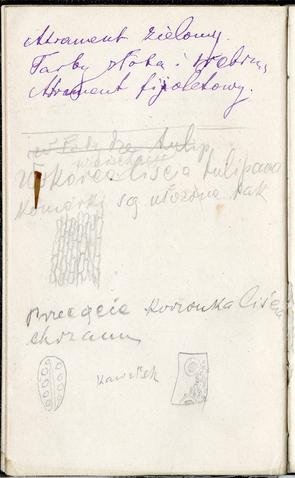 Atrament zielony.
Farby złota i srebrna
Atrament fijoletowy.
tulip
W skórce liścia tulipana
komórki są ułożone tak
Przecięcie korzonka liścia
kawałek